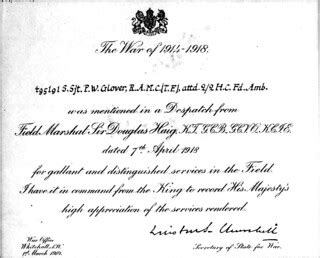 The War of 1914-1918.
495191 S.Sjt. P.W. Glover, R.A.M.C.(T.F.), attd. 2/2 H.C. Fd. Amb.
was mentioned in a Despatch from
Field Marshal Sir Douglas Haig, K.T. G.C.B. G.C.V.O. K.C.I.E.
dated 7th April 1918
for gallant and distinguished services in the Field.
I have it in command from the King to record His Majesty's
high appreciation of the services rendered.
Winston S. Churchill
War Office
Secretary of State for War.
Whitehall, S.W.
1st March 1919.